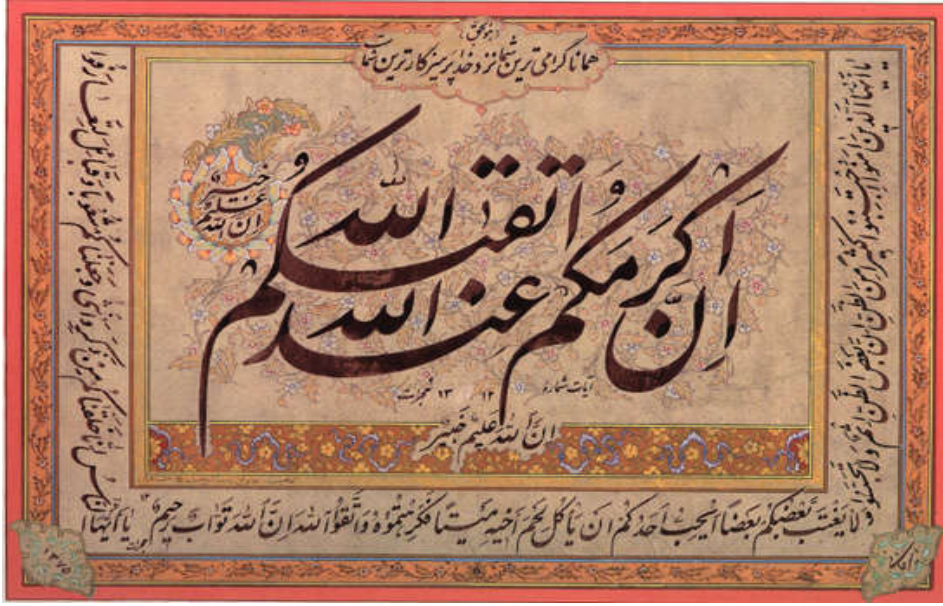 همانا گرامی ترین شما نزد خدا پرهیزکارترین شماست
اِنَّ اَکرَمَکُم عِند الله اتقیکم
الله
ان الله علیم خبیر
آیات شماره ۱۲ ۱۳ حجرات
ان الله علیم خبیر
یا ایها الذین آمنوا اجتنبوا کثیرا من الظن ان بعض الظن اثم ولا تجسسوا
ولا یغتب بعضکم بعضا ایحب احدکم ان یاکل لحم اخیه میتا فکرهتموه واتقوا الله ان الله تواب رحیم ۱۲ یا ایها
الناس انا خلقناکم من ذکر و انثی و جعلناکم شعوبا و قبائل لتعارفوا
۱۳۷۵